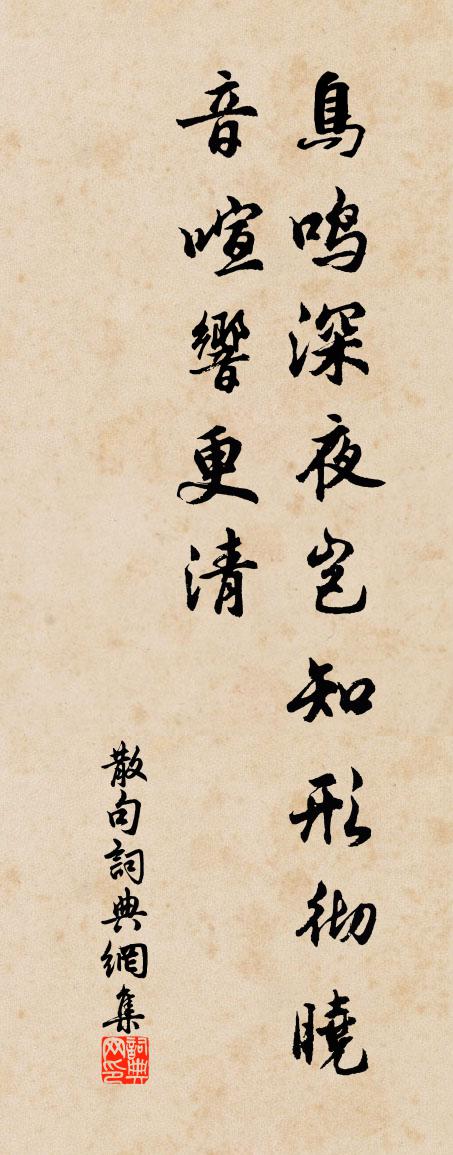 鳥鳴深夜岂知形彻曉
音喧響更清
散句詞典網集
詞典网印